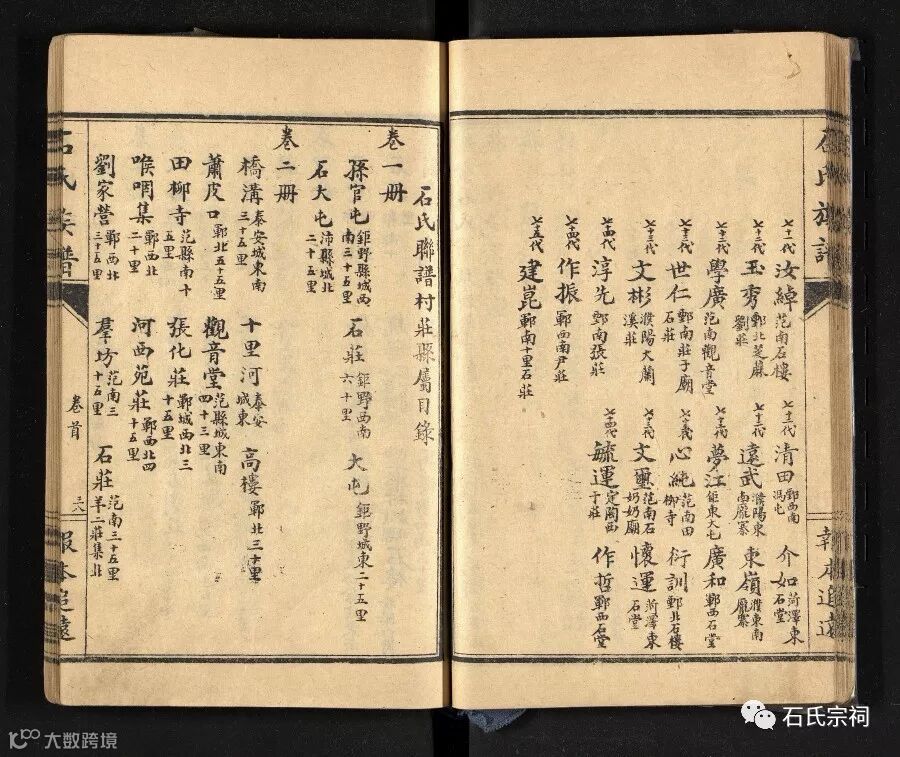 石氏族譜
七十一代 汝綽 范南石樓 七十三代 清田 鄄西南馮屯 介如 菏澤東石堂
七十二代 玉秀 鄄北芝蔴劉莊 七十三代 遠武 濮陽東南龐寨 東嶺 濮東南龐寨
七十三代 學廣 范南觀音堂 七十三代 夢江 鉅東大屯 廣和 鄄西石堂
七十三代 世仁 鄄南莊子廟石莊 七十三代 心純 范南田柳寺 衍訓 鄄北石樓
七十三代 文彬 濮陽大蘭溪莊 七十三代 文璽 范南石奶奶廟 懷運 菏澤東石堂
七十四代 淳先 鄄南張莊 七十四代 毓運 定陶西于莊 作哲 鄄西石堂
七十四代 作振 鄄西南尹莊
七十五代 建崑 鄄南十里石莊
報本追遠
石氏聯譜村莊縣屬目錄
卷一冊
孫官屯 鉅野縣城西南三十五里 石莊 鉅野西南六十里 大屯 鉅野城東二十五里
石大屯 沛縣城北二十五里
卷二冊
橋溝 泰安城東南三十五里 十里河 泰安城東 高樓 鄄北三十里
蕭皮口 鄄北五十五里 觀音堂 范縣城東南四十三里
田柳寺 范縣南十五里 張化莊 鄄城西北三十五里
喉咽集 鄄西北二十里 河西苑莊 鄄西北四十五里
劉家營 鄄西北三十五里 羣坊 范南三十五里 石莊 范南三十五里羊二莊集北
石氏族譜
卷首
三六
報本追遠
石氏宗祠
大数跨境